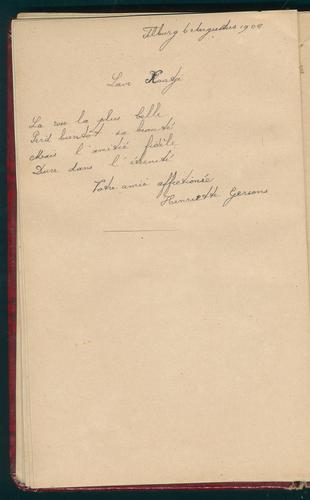 Tilburg 6 Augustus 1908
Lieve Xantje
La rose la plus belle
Perd bientôt sa beauté
Mais l'amitié fidèle
Dure dans l'éternité
Votre amie affectionée
Henriette Gersons